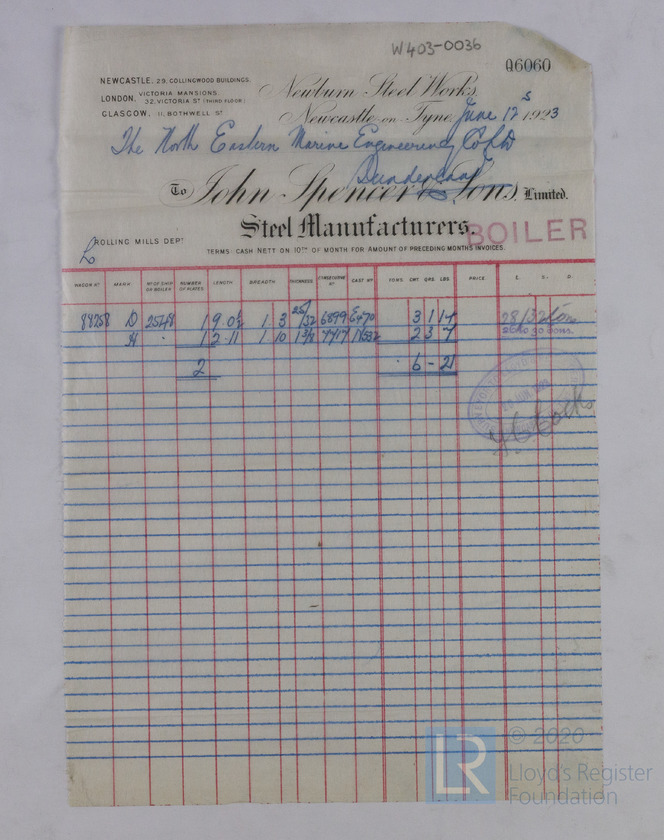 W403-0036
Q6060
NEWCASTLE, 29, COLLINGWOOD BUILDINGS.
LONDON, VICTORIA MANSIONS, 32, VICTORIA ST (THIRD FLOOR)
GLASGOW, 11, BOTHWELL ST
Newburn Steel Works,
Newcastle-on-Tyne, June 12 1923
The North Eastern Marine Engineering Co Ltd
Sunderland
To John Spencer & Sons, Limited.
Steel Manufacturers.
BOILER
ROLLING MILLS DEPT
TERMS: CASH NETT ON 10TH OF MONTH FOR AMOUNT OF PRECEDING MONTHS INVOICES.
WAGON NO MARK NO OF SHIP OR BOILER NUMBER OF PLATES LENGTH BREADTH THICKNESS CONSECUTIVE NO CAST NO TONS CWT QRS LBS PRICE £ S. D.
88258 D 2548 1 9 0½ 1 3 25/32 6899 3 1 14 28/32 tons
1 2 11 1 10 2 3 7
2 6 - 21
© 2020
LR
Lloyd's Register
Foundation